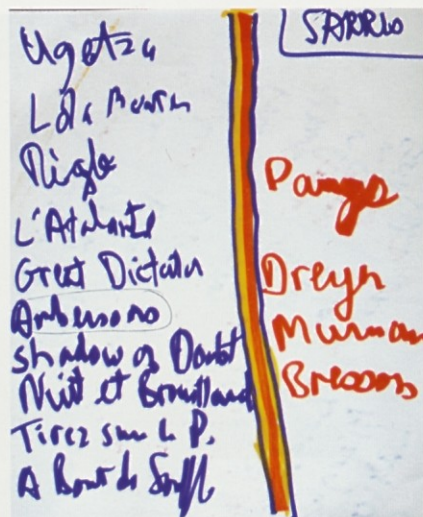 Ugetzu
Lola Montes
L'Atalante
Great Dictator
Ambersons
Shadow of Doubt
Nuit et Brouillard
Tirez sur L P.
A Bout de Souffl
Dreyer
Murnau
Bresson